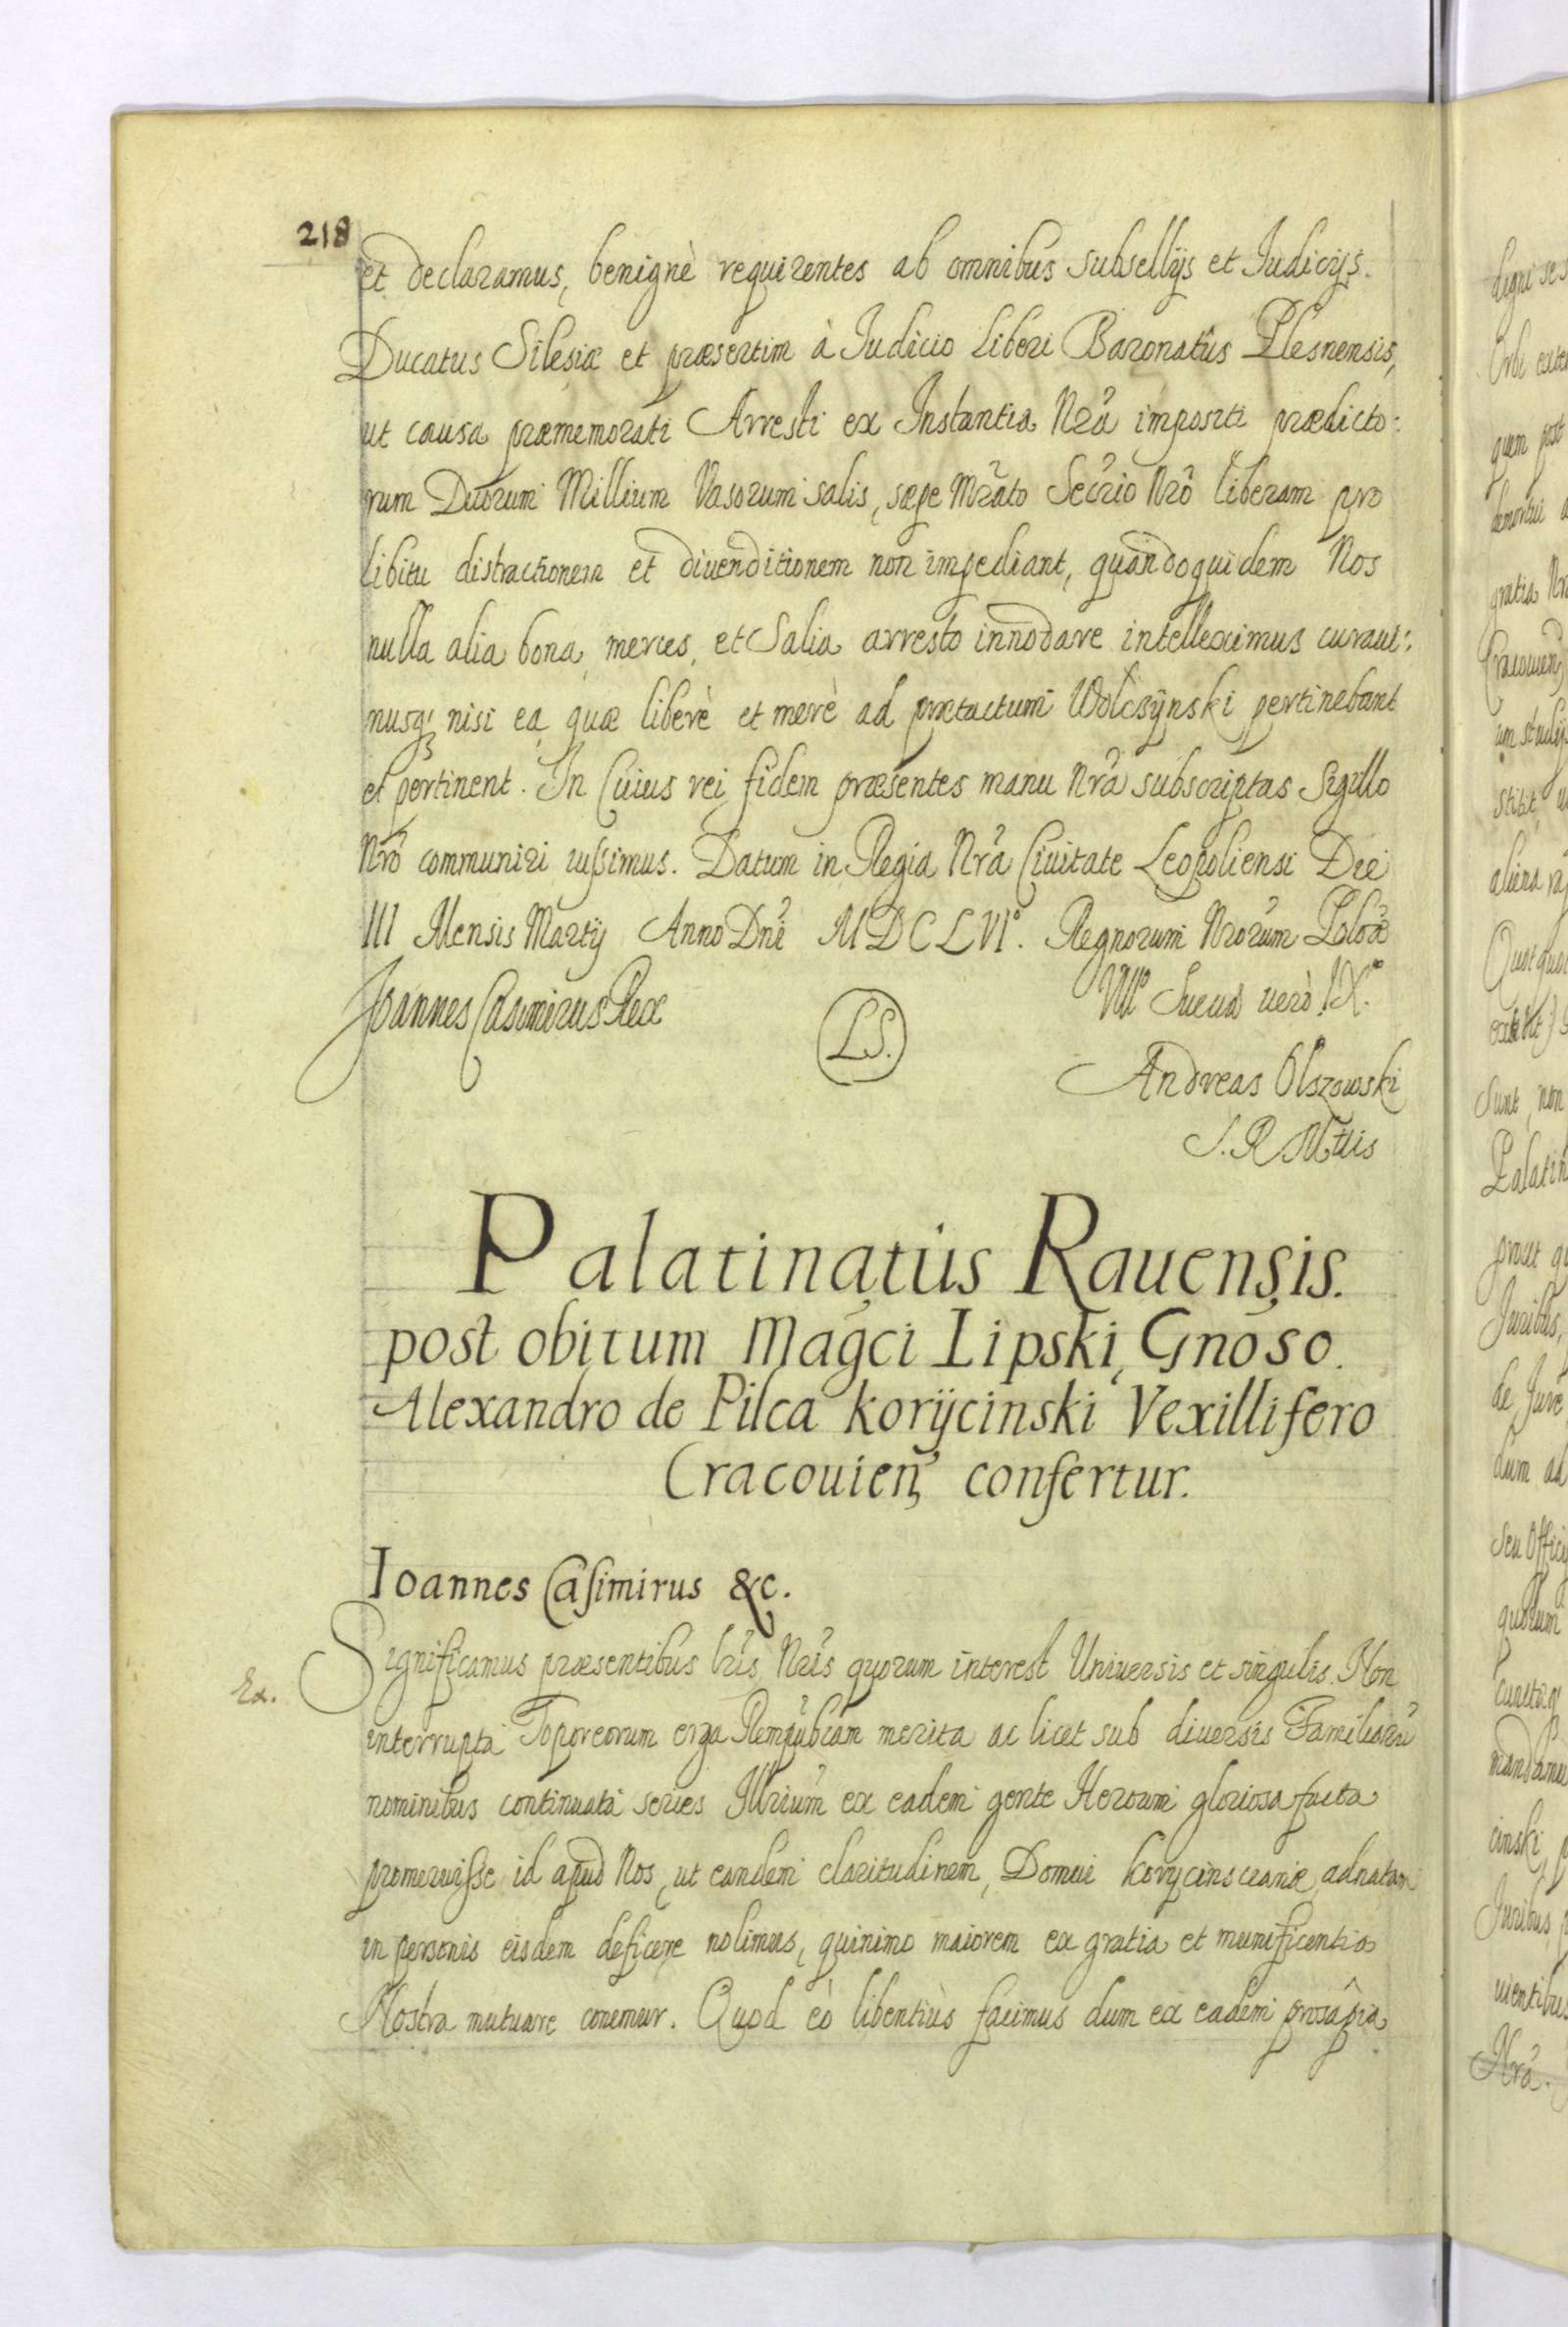 218
et declaramus, benignè requirentes ab omnibus Subsellÿs et Iudicÿs.
Ducatus Silesiæ et præsertim à Iudicio Liberi Baronatûs Plesnensis,
ut causa præmemorati Arresti ex Instantia Nrã impositi prædicto:
rum Duorum Millium Vasorum salis, sæpe Mrãto Secrio Nrõ liberam pro
libitu distractionem et diuenditionem non impediant, quandoquidem Nos
nulla alia bona, merces, et Salia arresto innodare intelleximus curaui:
musq3 nisi ea quæ liberè et merè ad prætactum Wolczÿnski pertinebant
et pertinent. In Cuius rei fidem præsentes manu Nrã subscriptas Sigillo
Nrõ communiri iussimus. Datum in Regia Nrã Ciuitate Leopoliensi Die
III Mensis Martÿ Anno Dnĩ MDCLVIº. Regnorum Nrorum Poloæ
VIIIº Sueciæ uerò IXº.
Joannes Casimirus Rex
LS.
Andreas Olszowski
S. R. Mttis
Palatinatus Rauensis.
post obitum Magci Lipski, Gnoso.
Alexandro de Pilca Korÿcinski Vexillifero
Cracouien̄, confertur.
Ioannes Casimirus &c.
Ex.
Significamus præsentibus lrĩs Nrĩs quorum interest Uniuersis et singulis. Non
interrupta Toporeorum erga Rempubcam merita ac licet sub diuersis Familiarũ
nominibus continuata series Illrium ex eadem gente Heroum gloriosa facta
promeruisse id apud Nos, ut eandem claritudinem, Domui Korycinscianæ adnatam
in personis eisdem deficere nolimus, quinimo maiorem ex gratia et munificentia
Nostra mutuare conemur. Quod eò libentiùs facimus dum ex eadem prosâpia